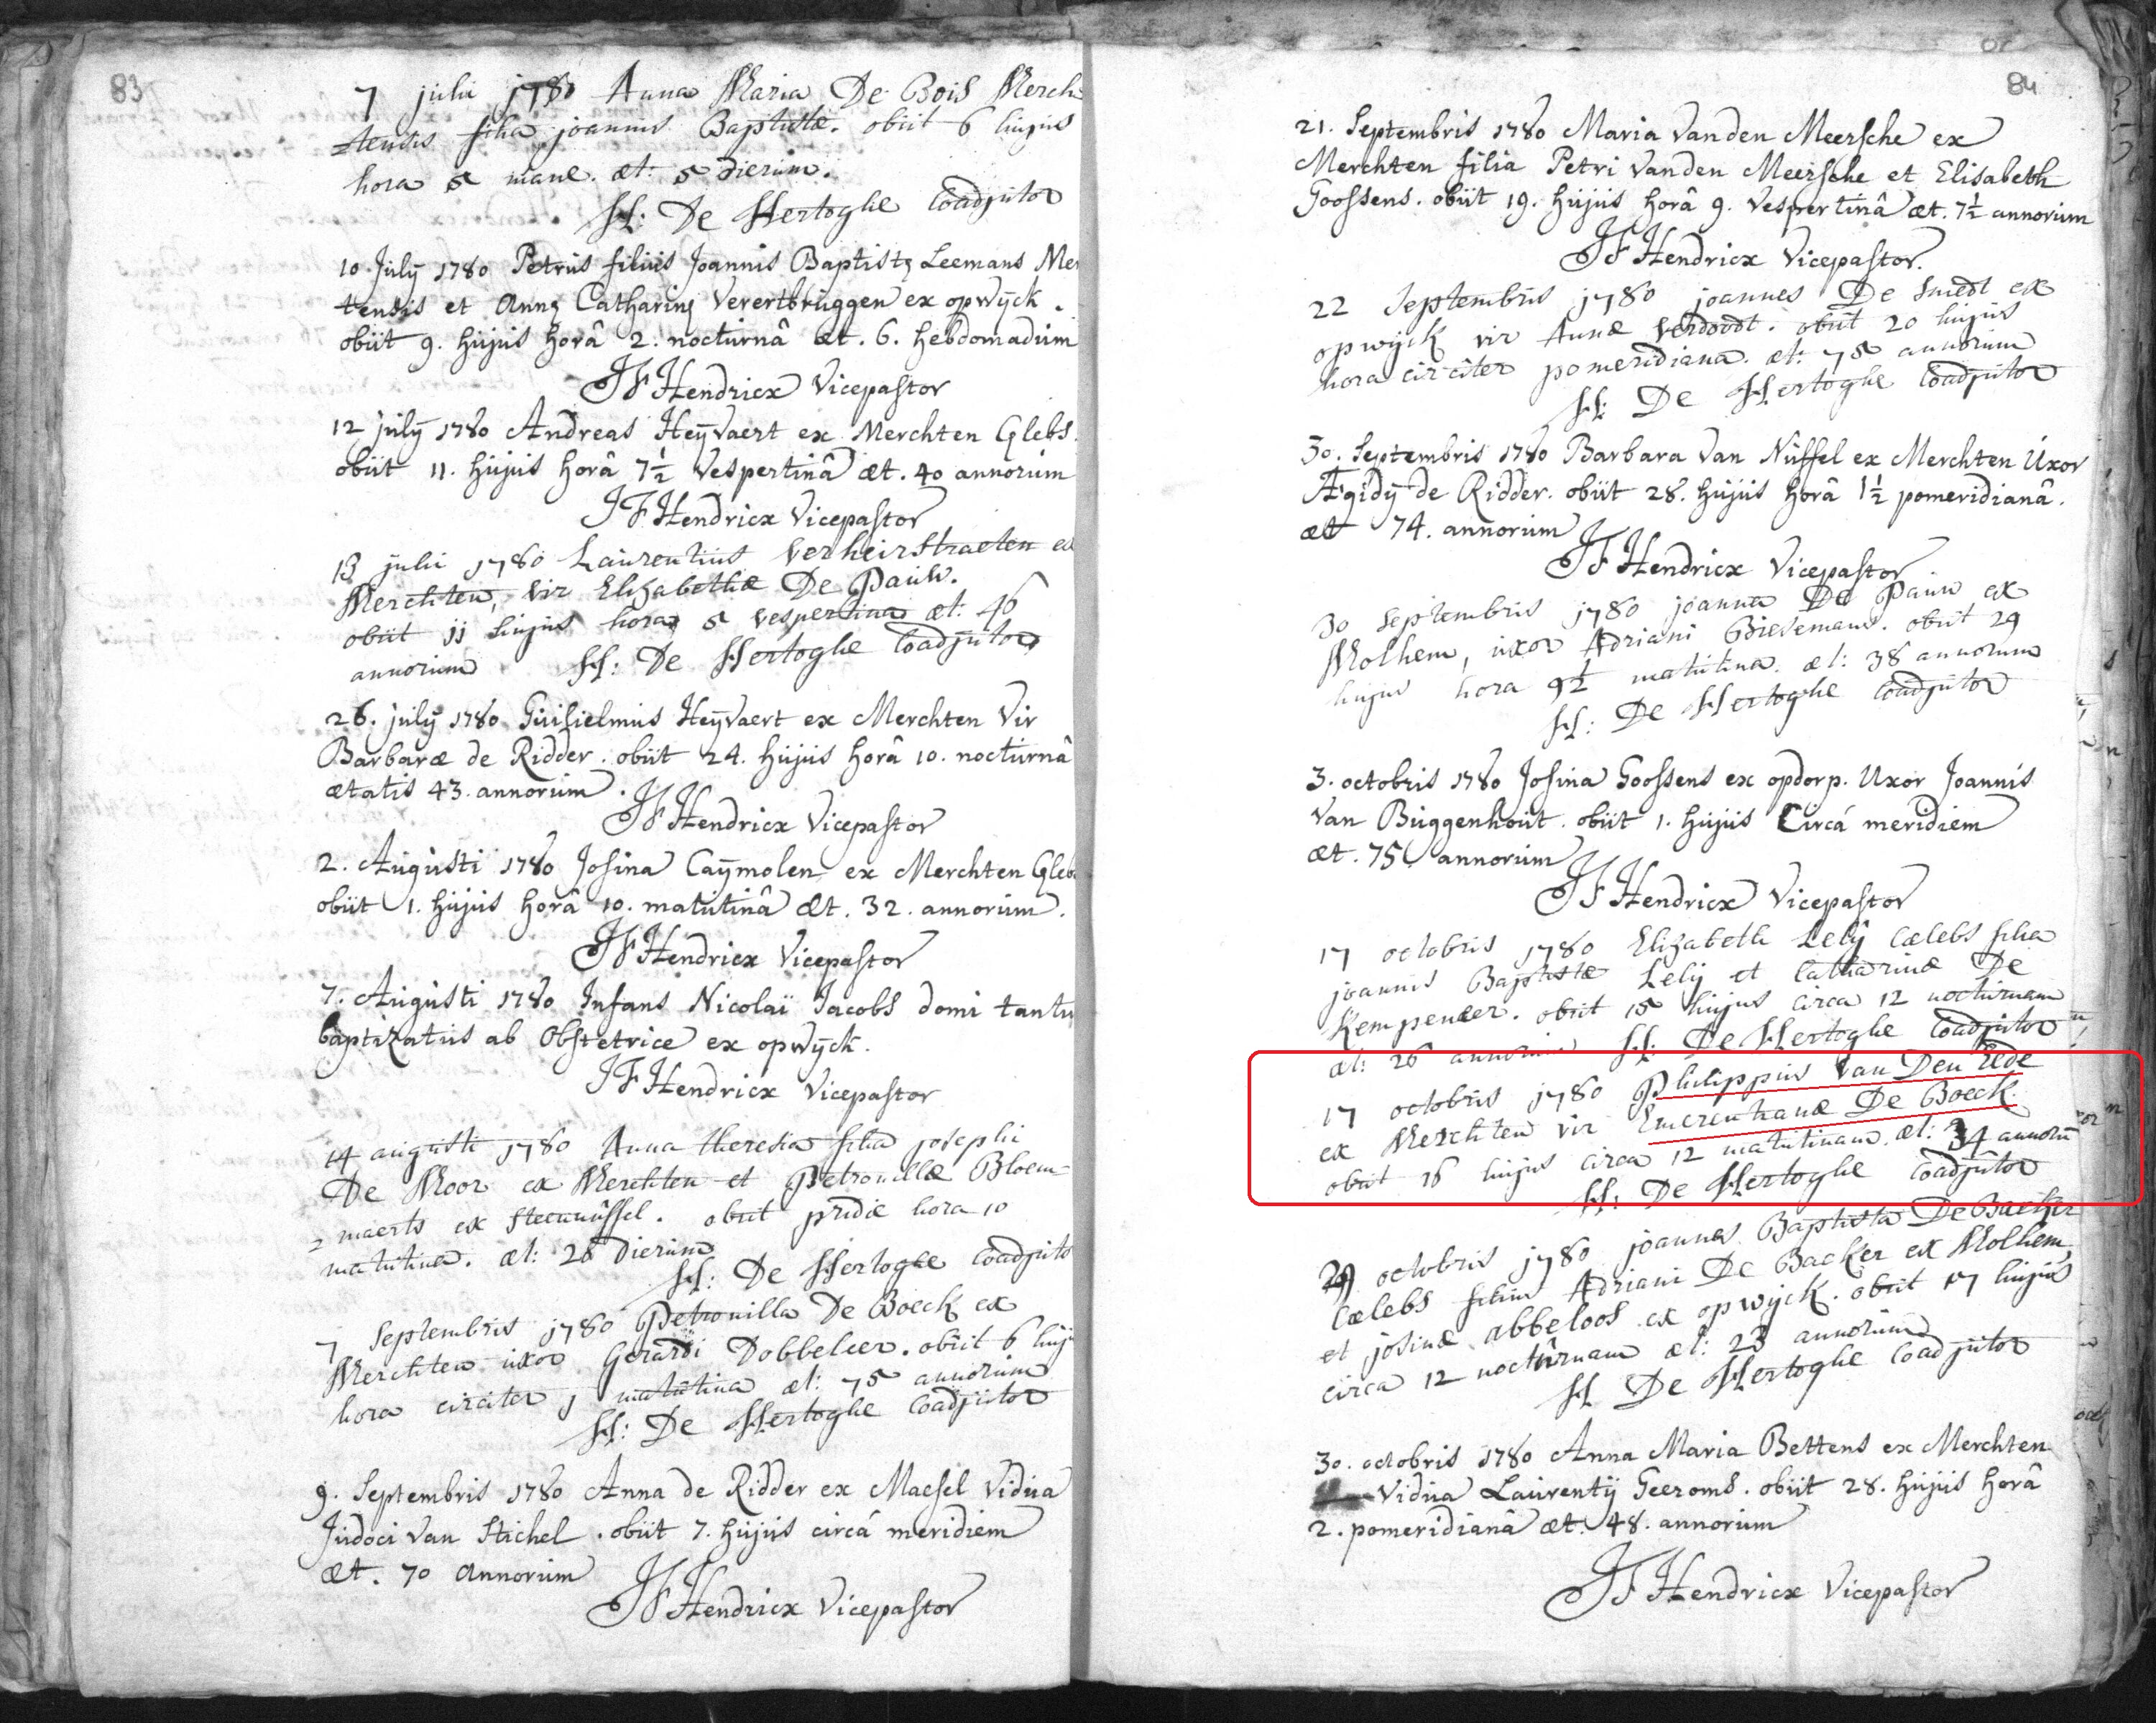 83
7 julii 1780 Anna Maria De Bois Merch
tensis filia joannis Baptistæ. obiit 6 hujus
hora 5 mane. æt: 5 dierum.
H: De Hertoghe Coadjutor
10 July 1780 Petrus filius Joannis Baptistę Leemans Mer
tensis et Annę Catharinę Verertbruggen ex opwÿck.
obiit 9. hujus horâ 2. nocturnâ æt. 6. hebdomadum
JF Hendricx Vicepastor
12 july 1780 Andreas Heÿvaert ex Merchten Cælebs.
obiit 11. hujus horâ 7½ Vespertinâ æt. 40 annorum
JF Hendricx Vicepastor
13 julii 1780 Laurentius Verheirstraeten ex
Merchten, vir Elizabethæ De Pauw.
obiit 11 hujus hora 5 vespertina æt: 46
annorum H: De Hertoghe Coadjutor
26. july 1780 Guilielmus Heÿvaert ex Merchten Vir
Barbaræ de Ridder. obiit 24. hujus horâ 10. nocturnâ
ætatis 43. annorum.
JF Hendricx Vicepastor
2. Augusti 1780 Josina Caÿmolen ex Merchten Cæleb
obiit 1. hujus horâ 10. matutinâ æt. 32. annorum.
JF Hendricx Vicepastor
7. Augusti 1780 Infans Nicolaï Jacobs domi tantu
baptizatus ab Obstetrice ex opwÿck.
JF Hendricx Vicepastor
14 augusti 1780 Anna theresia filia josephi
De Moor ex Merchten et Petronillæ Bloem-
maerts ex Steenuffel. obiit pridie hora 10
matutina. æt: 28 dierum
H: De Hertoghe Coadjuto
7 Septembris 1780 Petronilla De Boeck ex
Merchten uxor Gerardi Dobbeleer. obiit 6 huj
hora circiter 1 matutina æt: 75 annorum
H: De Hertoghe Coadjutor
9. Septembris 1780 Anna de Ridder ex Maesel Vidua
Judoci Van Stichel. obiit 7. hujus circá meridiem
æt. 70 annorum
JF Hendricx Vicepastor
84
21. Septembris 1780 Maria Vanden Meersche ex
Merchten filia Petri Vanden Meersche et Elisabeth
Goossens. obiit 19. hujus horâ 9. Vespertinâ æt. 7½ annorum
JF Hendricx Vicepastor.
22 Septembris 1780 joannes De Smedt ex
opwijck vir Annæ Verdoodt. obiit 20 hujus
hora circiter pomeridiana. æt: 75 annorum
H: De Hertoghe Coadjutor
30. Septembris 1780 Barbara Van Nuffel ex Merchten Uxor
Ægidÿ de Ridder. obiit 28. hujus horâ 1½ pomeridianâ.
æt 74. annorum
JF Hendricx Vicepastor
30 Septembris 1780 joanna De Pauw ex
Molhem, uxor Adriani Biesemans. obiit 29
hujus hora 9½ matutina. æt: 38 annorum
H: De Hertoghe Coadjutor
3. octobris 1780 Josina Goossens ex opdorp. Uxor Joannis
Van Buggenhout. obiit 1. hujus Circá meridiem
æt. 75. annorum
JF Hendricx Vicepastor
17 octobris 1780 Elizabeth Lelÿ Cælebs filia
joannis Baptistæ Lelij et Catharinæ De
Kempeneer. obiit 15 hujus circa 12 nocturnam
æt: 26 annorum H: De Hertoghe Coadjutor
17 octobris 1780 Philippus Van Den Eede
ex Merchten vir Emerentianæ De Boeck.
obiit 16 hujus circa 12 matutinam. æt: 34 annorū
H: De Hertoghe Coadjutor
octobris 1780 joannes Baptista De Backer
Cælebs filius Adriani De Backer ex Molhem,
et josinæ abbeloos ex opwijck. obiit 17 hujus
circa 12 nocturnam æt: 23 annorum
H De Hertoghe Coadjutor
30. octobris 1780 Anna Maria Bettens ex Merchten
Vidua Laurentÿ Geeroms. obiit 28. hujus horâ
2. pomeridianâ æt. 48. annorum
JF Hendricx Vicepastor